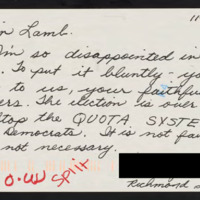 n Lamb.
I'm so disappointed in
To put it bluntly - y
to us, your faithfu
ers. The election is over
top the QUOTA SYSTE
Democrats. It is not fai
not necessary.
O-W split
Richmond